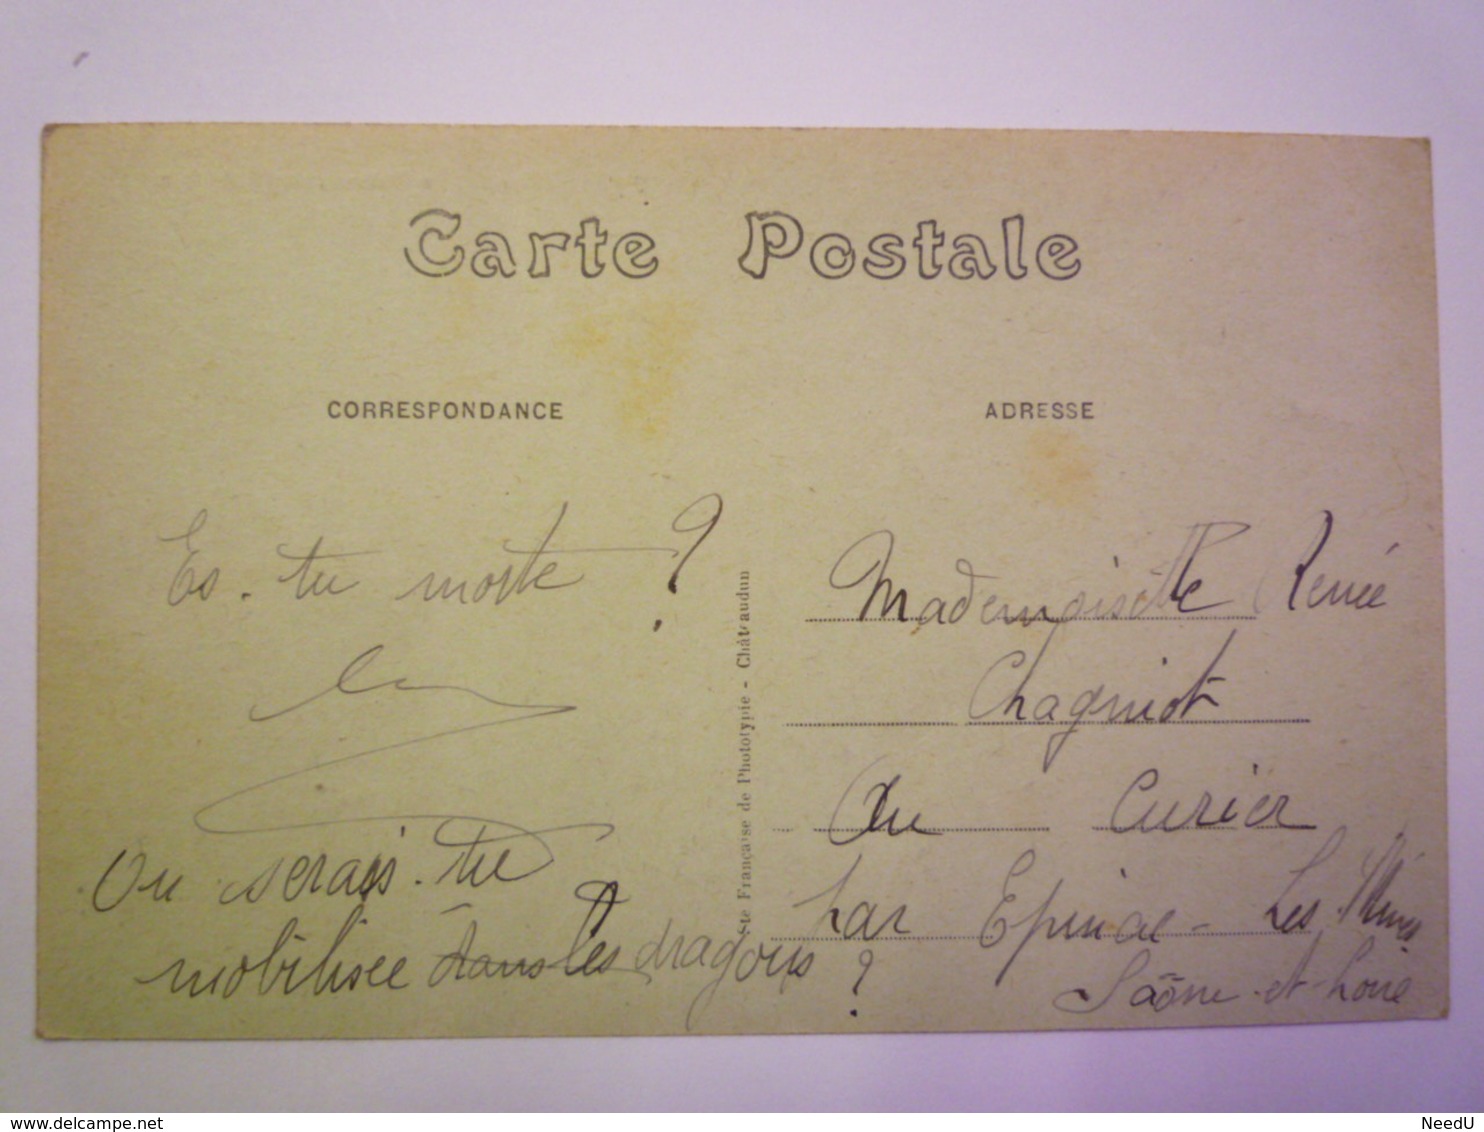 Carte Postale
CORRESPONDANCE
Es-tu morte ?
Ou serais-tu
mobilisée dans les dragons ?
Sté Française de Phototypie - Châteaudun
ADRESSE
Mademoiselle Renée
Chagniot
Au Curier
par Epinac-Les Mines
Saône-et-Loire
www.delcampe.net
NeedU